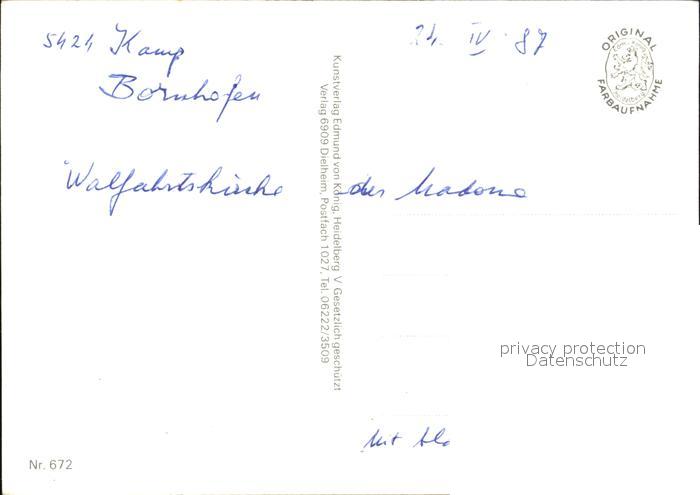 5424 Kamp
Bornhofen
24. IV. 87
Walfahrtskirche der Madona
Mit
ORIGINAL
FARBAUFNAHME
Kunstverlag Edmund von König, Heidelberg V Gesetzlich geschützt
Verlag 6909 Dielheim, Postfach 1027, Tel. 06222/3509
privacy protection
Datenschutz
Nr. 672